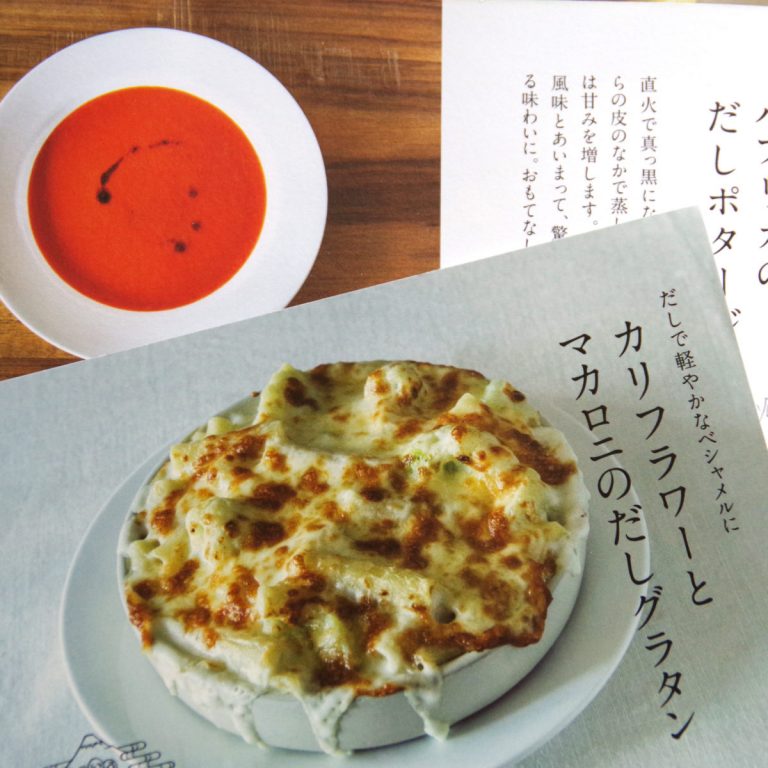 だしで軽やかなベシャメルに
カリフラワーと
マカロニのだしグラタン
パプリカの
だしポタージ
直火で真っ黒にな
らの皮のなかで蒸し
は甘みを増します。
風味とあいまって、驚
る味わいに。おもてなし